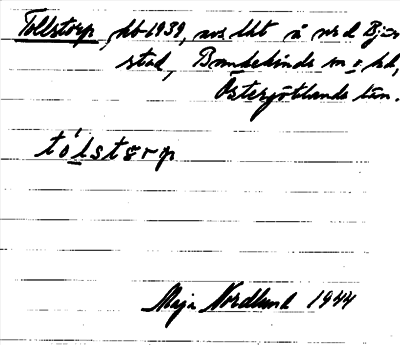 Tollstorp, kb 1939, avs lht å nr 2 Bju-
stad, Bankekinds sn o hd,
Östergötlands län.
tólstorp
Maja Nordlund 1944